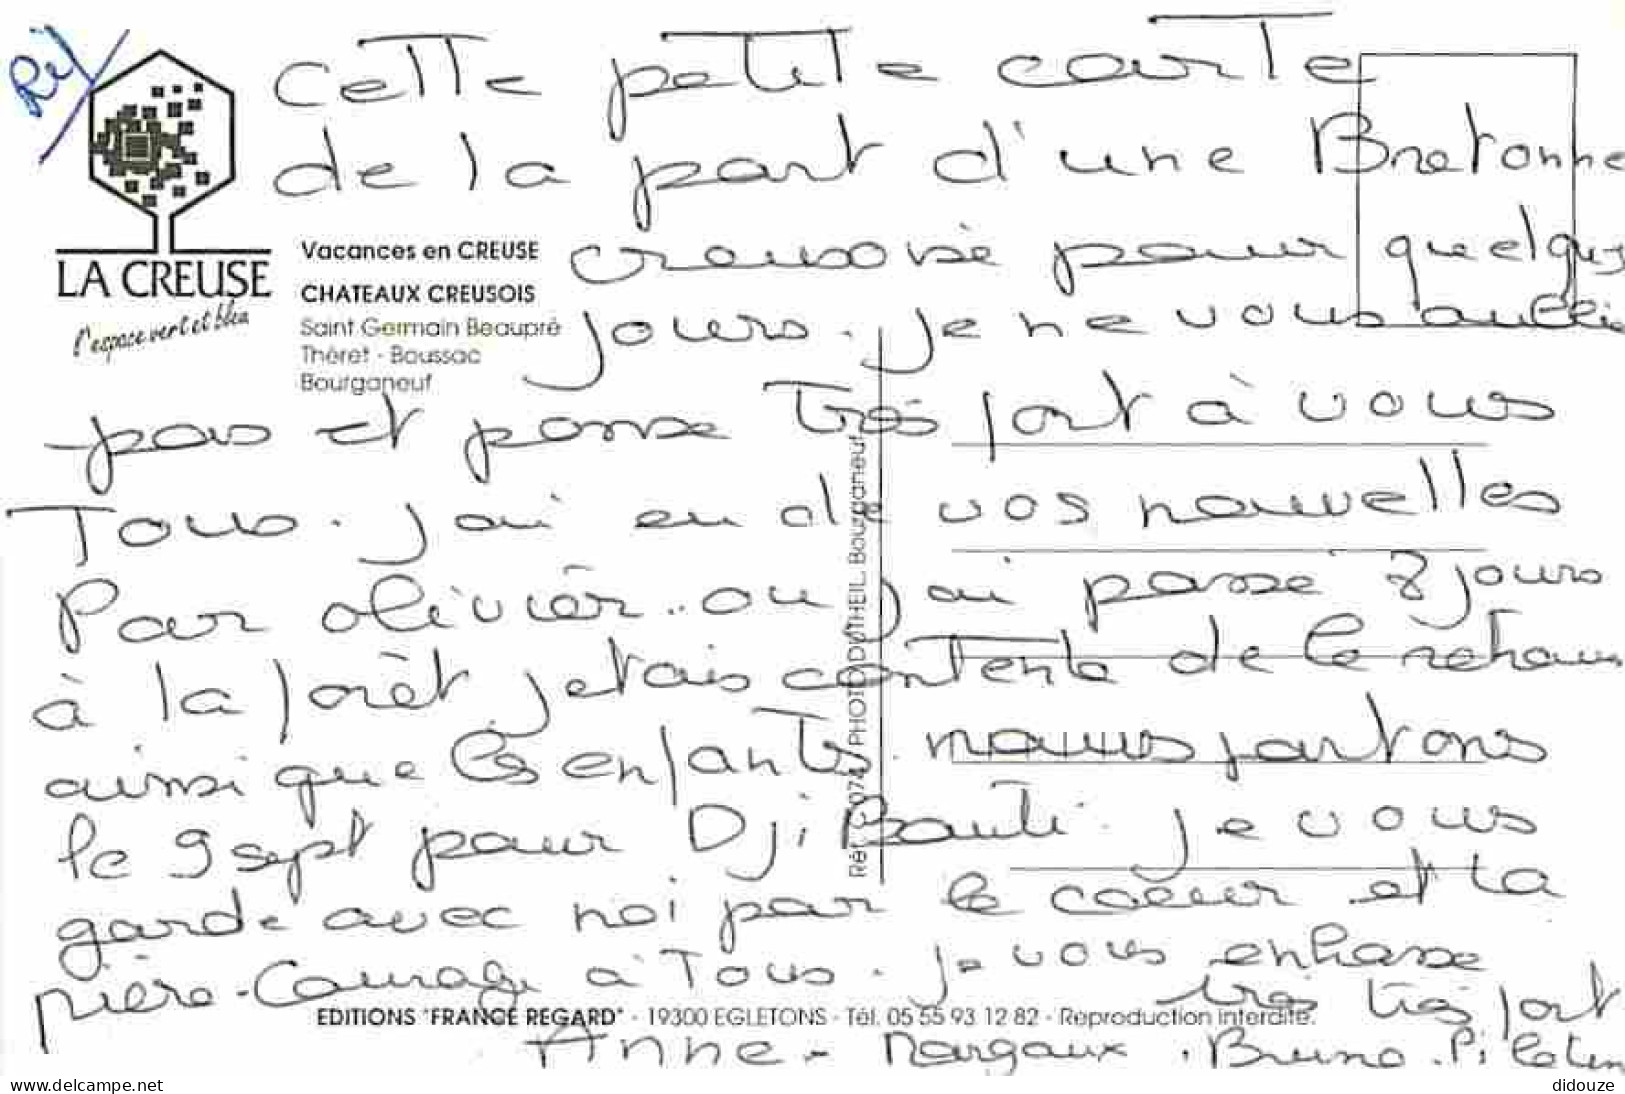 Rép
Cette petite carte
de la part d'une Bretonne
creusoise pour quelques
jours. je ne vous oublie
pas et pense très fort à vous
Tous. j'ai eu de vos nouvelles
Par olivier.. ou j'ai passe 8 jours
à la forêt. jetais contente de le retrouv
ainsi que les enfants. nous partons
le 9 sept pour Dji Bouti. je vous
garde avec moi par le coeur et la
prière. Courage à Tous. je vous embrasse
très très fort
Anne - Margaux. Bruno.
LA CREUSE
l'espace vert et bleu
Vacances en CREUSE
CHATEAUX CREUSOIS
Saint Germain Beaupré
Théret - Boussac
Bourganeuf
PHOTO DUTHEIL Bourganeuf
EDITIONS "FRANCE REGARD" - 19300 EGLETONS - Tél. 05 55 93 12 82 - Reproduction interdite.
www.delcampe.net
didouze